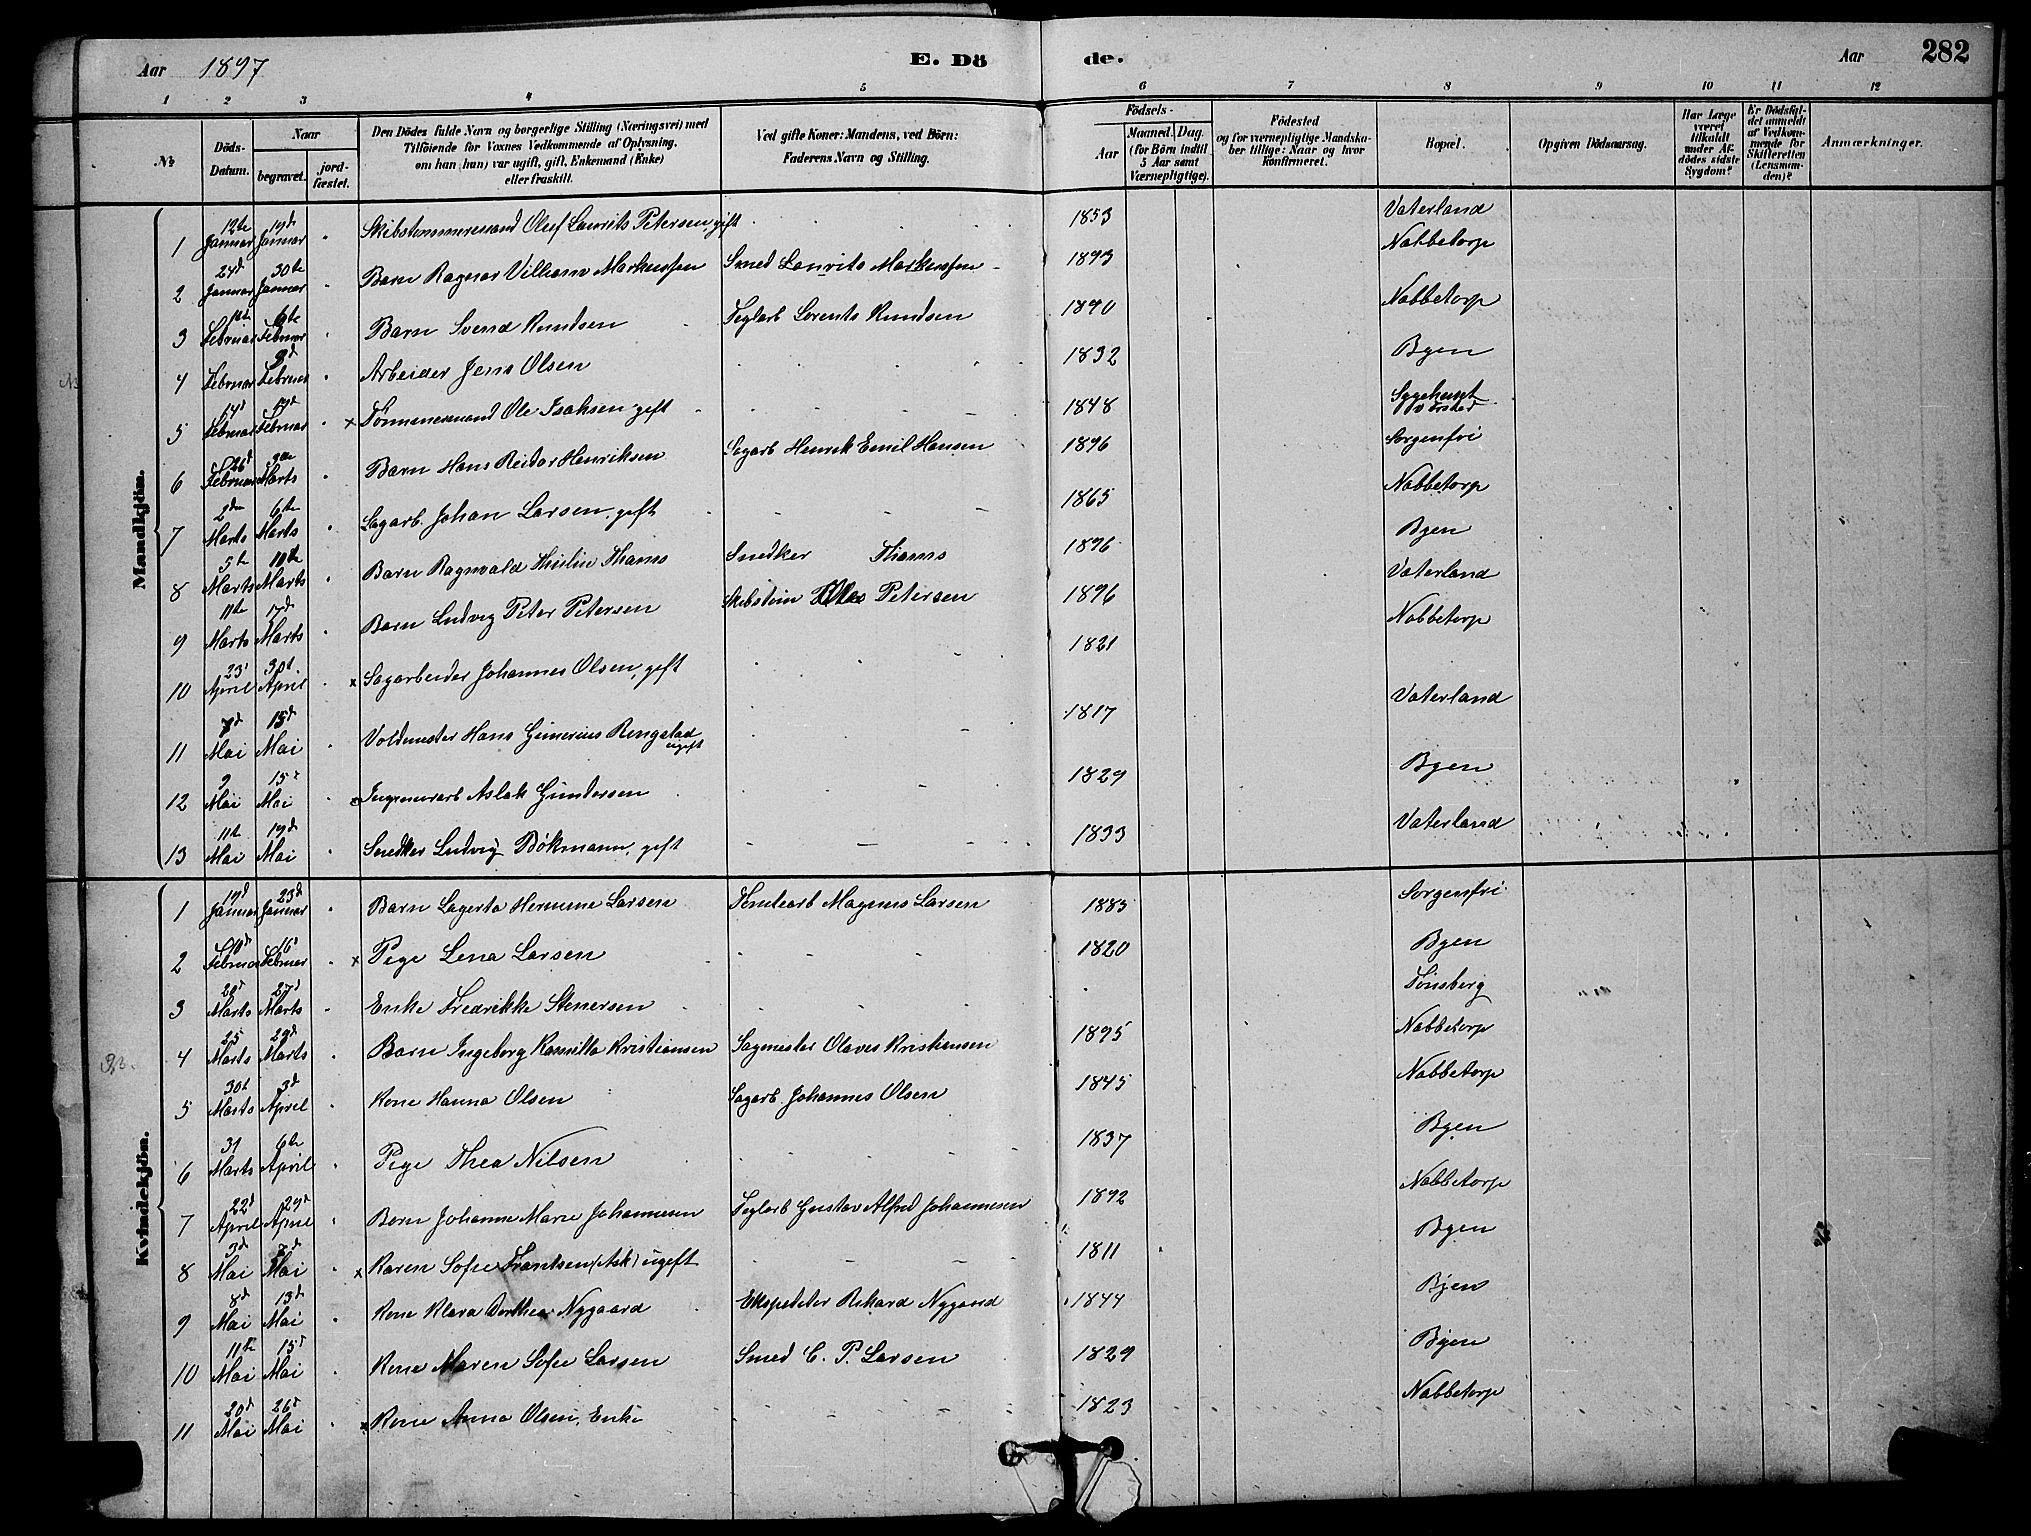 Aar 1897 E. Dö de. Aar 282
1 2 3 4 5 6 7 8 9 10 11 12
No Döds-Datum. Naar begravet. jordfæstet. Den Dödes fulde Navn og borgerlige Stilling (Næringsvei) med Tilföiende for Voxnes Vedkommende af Oplysning, om han (hun) var ugift, gift, Enkemand (Enke) eller fraskilt. Ved gifte Koner: Mandens, ved Börn: Faderens Navn og Stilling. Födsels- Aar Maaned. Dag. (for Börn indtil 5 Aar samt Værnepligtige). Födested og for værnepligtige Mandskaber tillige: Naar og hvor konfirmeret. Bopæl. Opgiven Dödsaarsag. Har Læge været tilkaldt under Afdödes sidste Sygdom? Er Dödsfaldet anmeldt af Vedkommende for Skifteretten (Lensmanden)? Anmærkninger.
Mandkjön.
1 12te Januar 19d Januar Skibstømmermand Oluf Laurits Petersen gift 1853 Vaterland
2 24d Januar 30te Januar Barn Ragnar Villiam Markussen Smed Laurits Markussen 1893 Nabbetorp
3 Februar 6te Februar Barn Svend Knudsen Teglarb Lorents Knudsen 1890 Nabbetorp
4 Februar Februar Arbeider Jens Olsen 1832 Byen
5 14d Februar 19d Februar x Tømmermand Ole Isaksen gift 1848 Sygehuset
6 26d Februar Marts Barn Hans Reidar Henriksen Sagarb Henrik Emil Hansen 1896 Sorgenfri
7 2den Marts 6te Marts Sagarb. Johan Larsen, gift 1865 Nabbetorp
8 5te Marts 10de Marts Barn Ragnvald Thams Snedker Thams 1896 Byen
9 11te Marts 17d Marts Barn Ludvig Peter Petersen Skibstøm Petersen 1896 Vaterland
10 23d April 30t April x Sagarbeider Johannes Olsen, gift 1821 Nabbetorp
11 7d Mai 15d Mai Voldmester Hans Gunerius Ringstad ugift 1817 Vaterland
12 9 Mai 15d Mai x Aslak Gundersen 1829 Byen
13 11te Mai 19d Mai Snedker Ludvig Bøkmann, gift 1833 Vaterland
Kvindekjön.
1 19d Januar 23d Januar Barn Lagerta Hermine Larsen Magnus Larsen 1885 Sorgenfri
2 10de Februar 16d Februar x Pige Lena Larsen 1820 Byen
3 20d Marts 27d Marts Enke Fredrikke Stenersen Tønsberg
4 25d Marts 29d Marts Barn Ingeborg Kamilla Kristiansen Sagmester Olaves Kristiansen 1895 Nabbetorp
5 30t Marts 3d April Kone Hanna Olsen Sagarb. Johannes Olsen 1845 Nabbetorp
6 31 Marts 6te April Pige Thea Nilsen 1837 Byen
7 22d April 29d April Barn Johanne Marie Johannesen Teglarb Gustav Alfred Johannesen 1892 Nabbetorp
8 3d Mai 7d Mai x Karen Sofie Frantsen (Ask) ugift 1811 Byen
9 8d Mai 13d Mai Kone Klara Dorthea Nygaard Ekspeditør Rikard Nygaard 1844 Byen
10 11te Mai 15d Mai Kone Maren Sofie Larsen Smed C. P. Larsen 1829 Byen
11 20d Mai 26d Mai x Kone Anna Olsen, Enke 1823 Nabbetorp